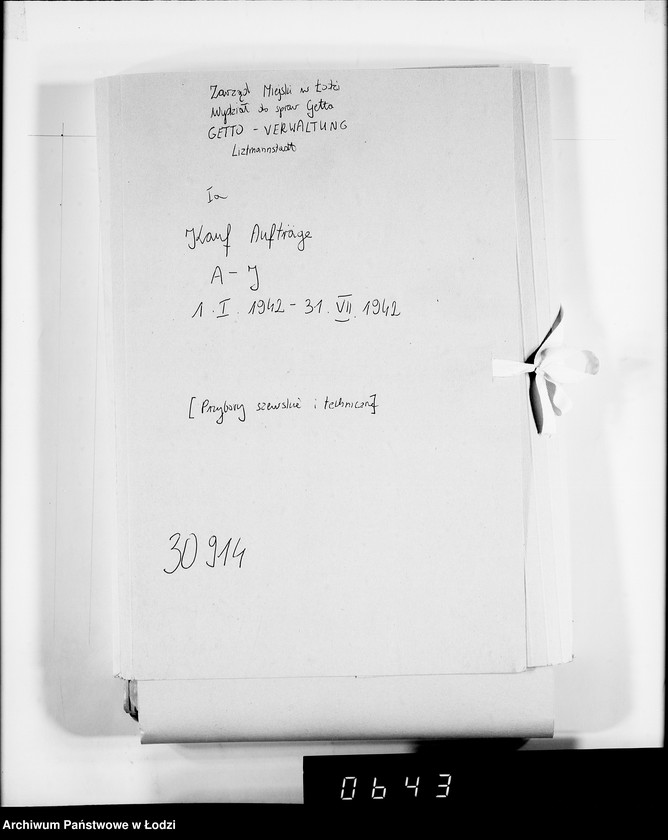 Zarząd Miejski w Łodzi
Wydział do spraw Getta
GETTO - VERWALTUNG
Litzmannstadt
Ia
Kauf Aufträge
A - J
1. I. 1942 - 31. VII. 1942
[Przybory szewskie i techniczne]
30914
0643
Archiwum Państwowe w Łodzi